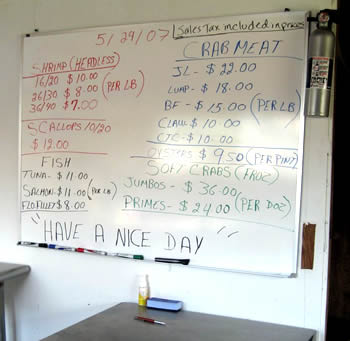 5/29/07 Sales Tax included in prices
SHRIMP (HEADLESS)
16/20 $10.00
26/30 $8.00 (PER LB)
36/40 $7.00
SCALLOPS 10/20
$12.00
FISH
TUNA- $11.00
SALMON- $11.00 (per LB)
FLO FILLET $8.00
CRAB MEAT
JL- $22.00
LUMP- $18.00
BF- $15.00 (PER LB)
CLAW- $10.00
CTC- $10.00
OYSTERS $9.50 (PER PINT)
SOFT CRABS (FROZ)
JUMBOS- $36.00
PRIMES- $24.00 (PER DOZ)
"HAVE A NICE DAY"